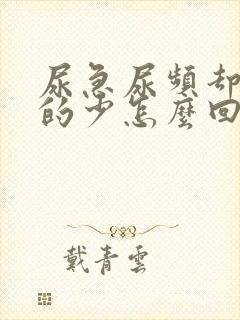 尿急尿頻却
的少怎麼回
戴青雲